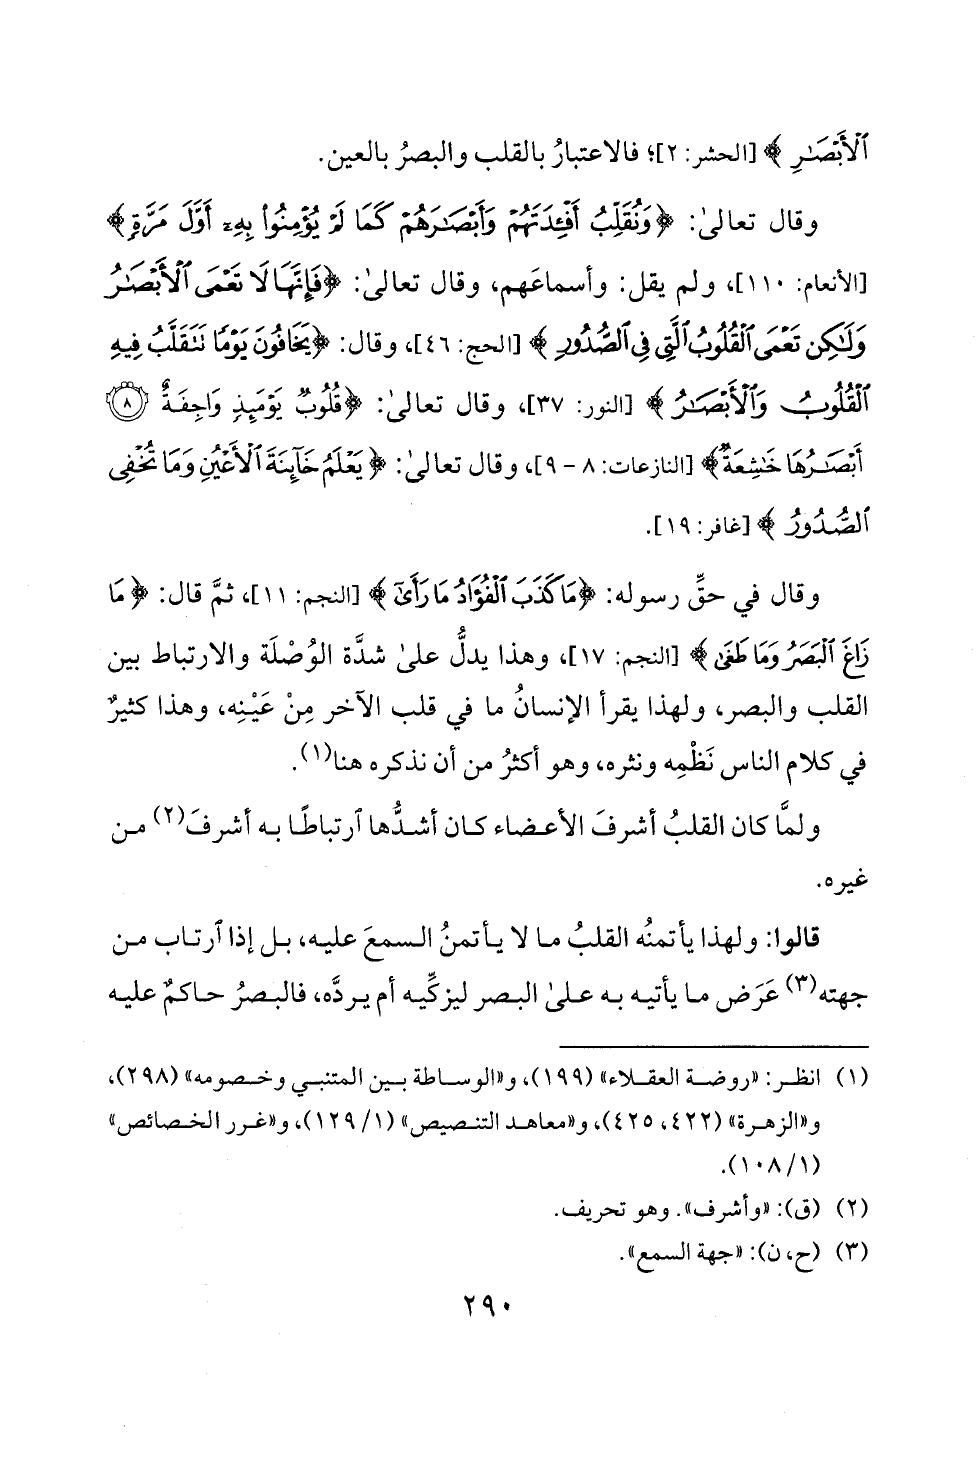 ٱلْأَبْصَـٰرِ ﴾ [الحشر: ٢]؛ فالاعتبارُ بالقلب والبصرُ بالعين.
وقال تعالىٰ: ﴿وَنُقَلِّبُ أَفْـِٔدَتَهُمْ وَأَبْصَـٰرَهُمْ كَمَا لَمْ يُؤْمِنُوا۟ بِهِۦٓ أَوَّلَ مَرَّةٍ﴾
[الأنعام: ١١٠]، ولم يقل: وأسماعَهم، وقال تعالىٰ: ﴿فَإِنَّهَا لَا تَعْمَى ٱلْأَبْصَـٰرُ
وَلَـٰكِن تَعْمَى ٱلْقُلُوبُ ٱلَّتِى فِى ٱلصُّدُورِ ﴾ [الحج: ٤٦]، وقال: ﴿يَخَافُونَ يَوْمًا تَتَقَلَّبُ فِيهِ
ٱلْقُلُوبُ وَٱلْأَبْصَـٰرُ ﴾ [النور: ٣٧]، وقال تعالىٰ: ﴿قُلُوبٌ يَوْمَئِذٍ وَاجِفَةٌ ۝٨
أَبْصَـٰرُهَا خَـٰشِعَةٌ﴾ [النازعات: ٨ - ٩]، وقال تعالىٰ: ﴿يَعْلَمُ خَآئِنَةَ ٱلْأَعْيُنِ وَمَا تُخْفِى
ٱلصُّدُورُ ﴾ [غافر: ١٩].
وقال في حقِّ رسوله: ﴿مَا كَذَبَ ٱلْفُؤَادُ مَا رَأَىٰٓ ﴾ [النجم: ١١]، ثمَّ قال: ﴿ مَا
زَاغَ ٱلْبَصَرُ وَمَا طَغَىٰ ﴾ [النجم: ١٧]، وهذا يدلُّ علىٰ شدَّة الوُصْلَة والارتباط بين
القلب والبصر، ولهذا يقرأ الإنسانُ ما في قلب الآخر مِنْ عَيْنِه، وهذا كثيرٌ
في كلام الناس نَظْمِه ونثره، وهو أكثرُ من أن نذكره هنا(١).
ولمَّا كان القلبُ أشرفَ الأعضاء كان أشدُّها ٱرتباطًا به أشرفَ(٢) من
غيره.
قالوا: ولهذا يأتمنُه القلبُ ما لا يأتمنُ السمعَ عليه، بل إذا ٱرتاب من
جهته(٣) عَرَض ما يأتيه به علىٰ البصر ليزكِّيه أم يردَّه، فالبصرُ حاكمٌ عليه
(١) انظر: «روضة العقلاء» (١٩٩)، و«الوساطة بين المتنبي وخصومه» (٢٩٨)،
و«الزهرة» (٤٢٢، ٤٢٥)، و«معاهد التنصيص» (١/ ١٢٩)، و«غرر الخصائص»
(١/ ١٠٨).
(٢) (ق): «وأشرف». وهو تحريف.
(٣) (ح، ن): «جهة السمع».
٢٩٠